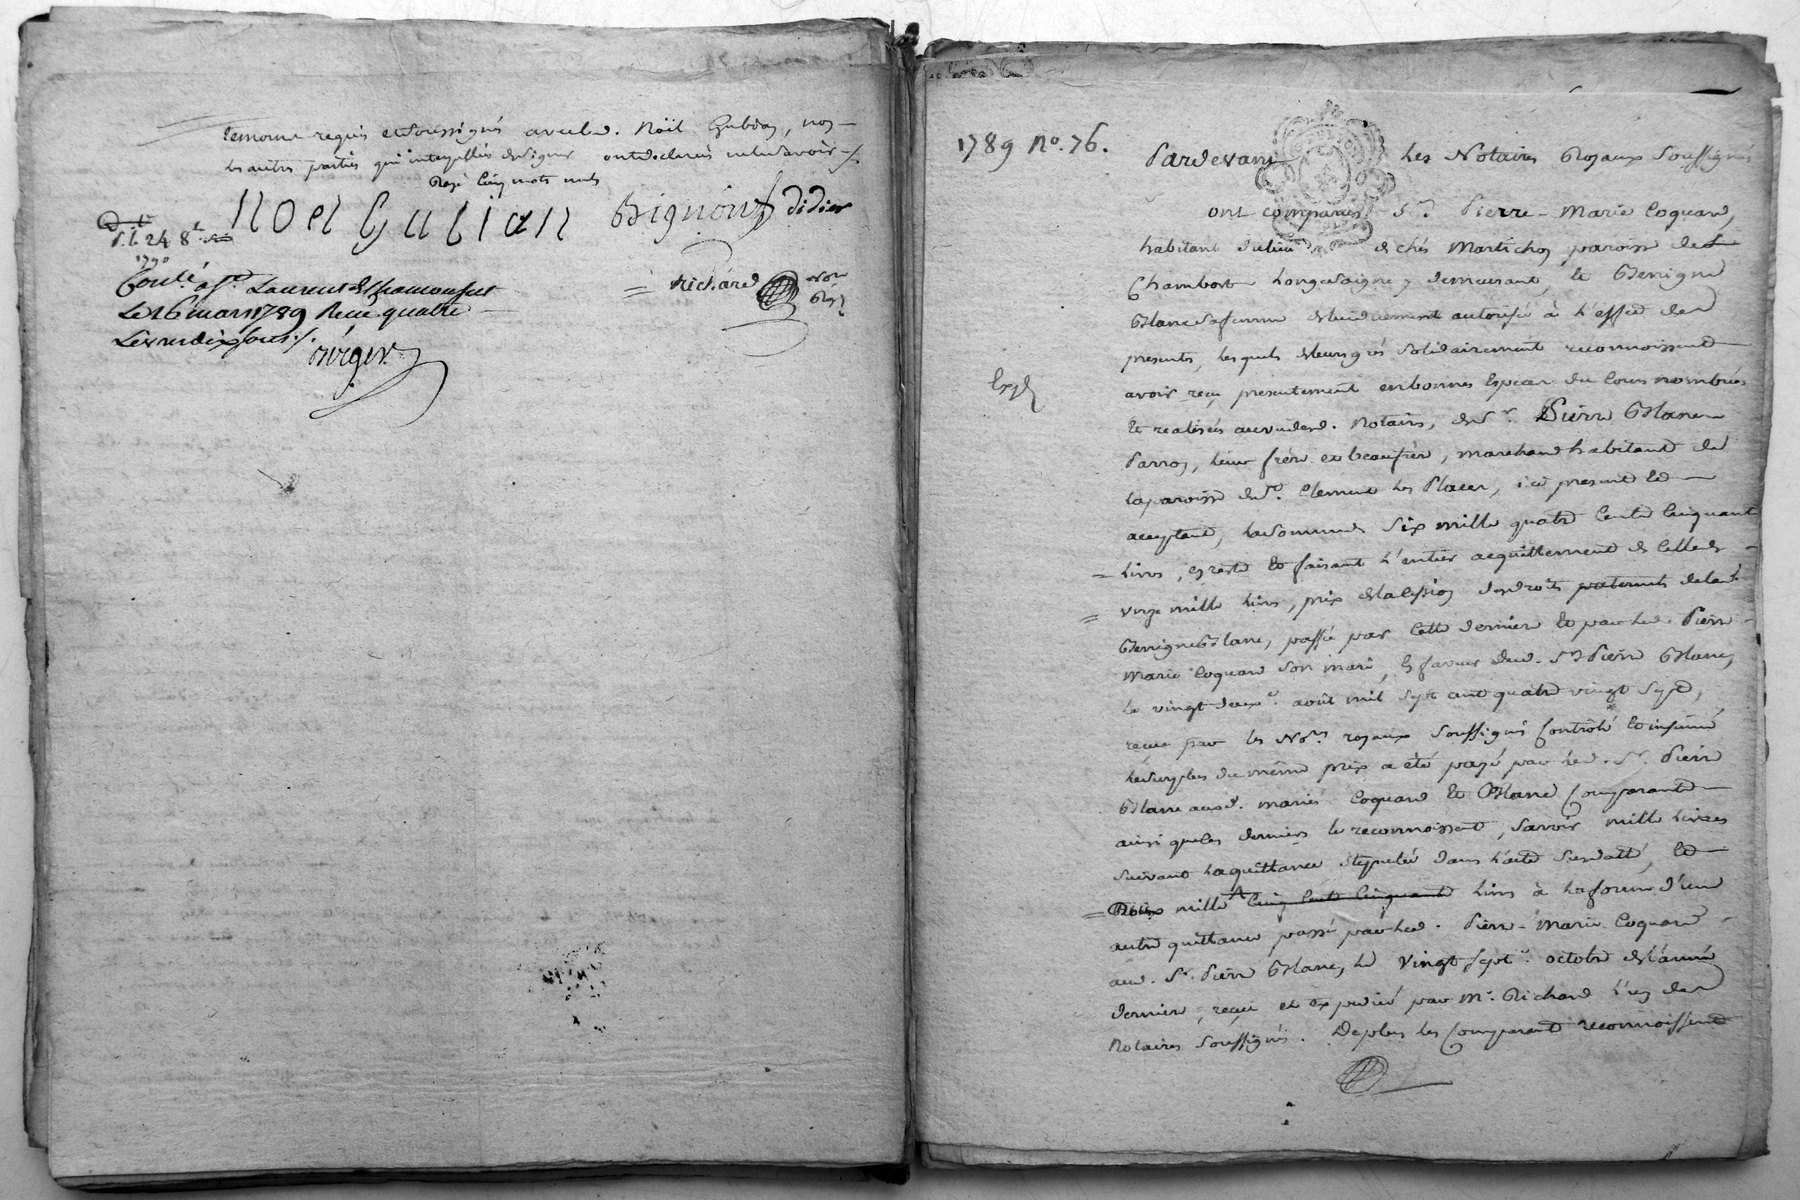 temoins requis et soussignés avec led. Noël
les autres parties qui interpellés de signer ont declarés ne le savoir
Rayé cinq mots nuls
Noel Gulian Bignoin didier
24 8
1790
Richard no.re Roy.l
Conlé à St. Laurent de Chamousset
Le 16 mars 1789 Reçu quatre
Livres dix sous
Berger
1789 No. 76.
Pardevant Les Notaires Royaux Soussignés
ont comparus Sr. Pierre-Marie Coquard,
habitant du lieu de chés Martichon paroisse de
Chambost Longesaigne, demeurant, et Benigne
Blanc sa femme de lui duement autorisée à l'effet des
presents, lesquels de leurs grés solidairement reconnoissent
avoir reçu presentement en bonnes Especes du Cours nombrées
Exp.
et realisées au vu desd. Notaires, de Sr. Pierre Blanc
Parron, leur frere et beaufrere, marchand habitant de
la paroisse de St. Clement les Places, ici present et
acceptant, la somme de Six mille quatre Cents Cinquante
Livres, en reste et faisant l'entier acquittement de Celle de
onze mille livres, prix de la cession des droits paternels de lad.
Benigne Blanc, passée par Cette derniere et par led. Pierre
Marie Coquard son mari, en faveur dud. Sr. Pierre Blanc,
le vingt deux août mil sept cent quatre vingt sept,
reçue par les No.res royaux soussignés Controlé et insinué
le surplus du même prix a été payé par led. Sr. Pierre
Blanc auxd. mariés Coquard et Blanc Comparants
ainsi que les derniers le reconnoissent, savoir mille livres
suivant la quittance stipulée dans l'acte susdatté, et
mille cinq Cents Cinquante livres à la forme d'une
autre quittance passé par led. Pierre-Marie Coquard
aud. Sr. Pierre Blanc, le vingt sept octobre de l'année
derniere, reçue et expediée par Me. Richard l'un des
Notaires Soussignés. De plus les Comparants reconnoissent